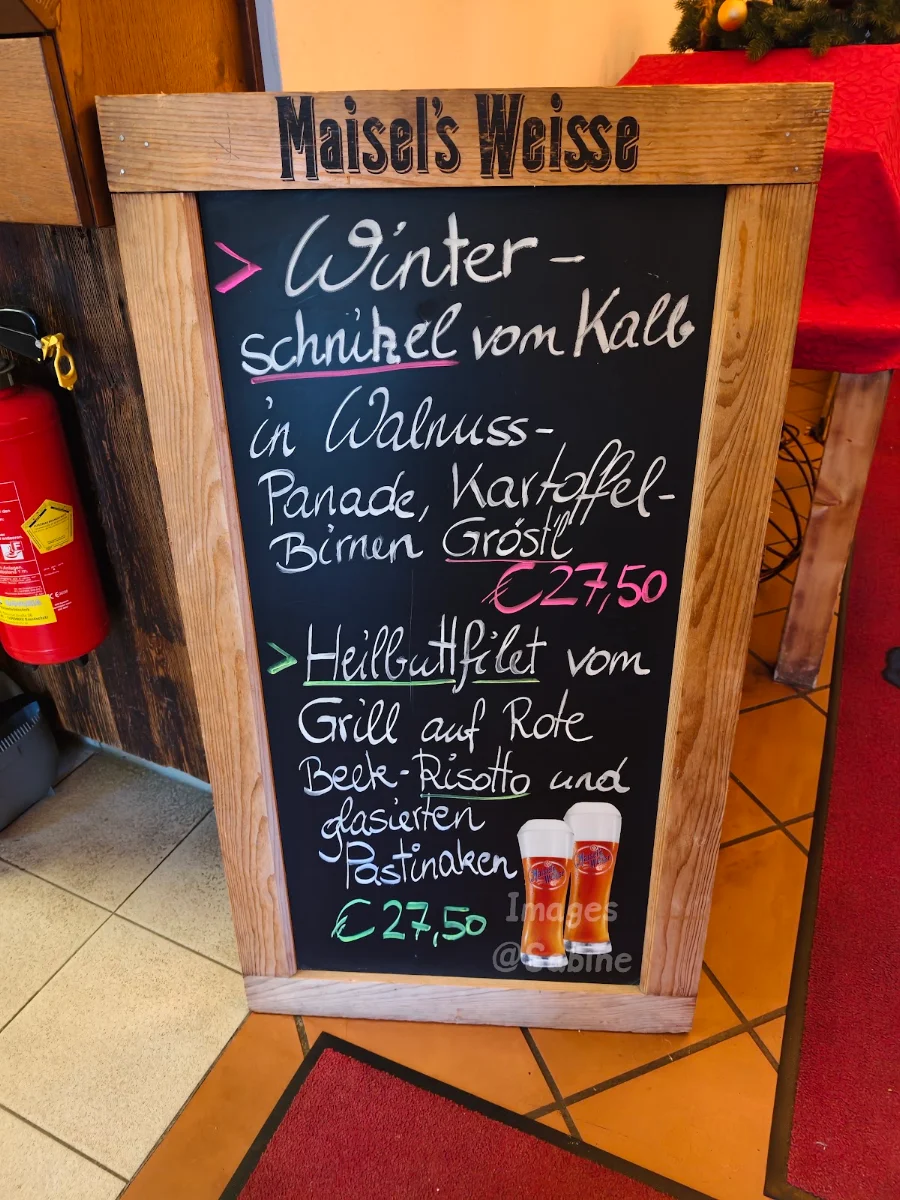 Maisel's Weisse
> Winter-
schnitzel vom Kalb
in Walnuss-
Panade, Kartoffel-
Birnen Gröstl
€27,50
> Heilbuttfilet vom
Grill auf Rote
Beete-Risotto und
glasierten
Pastinaken
€27,50
Images
@Sabine